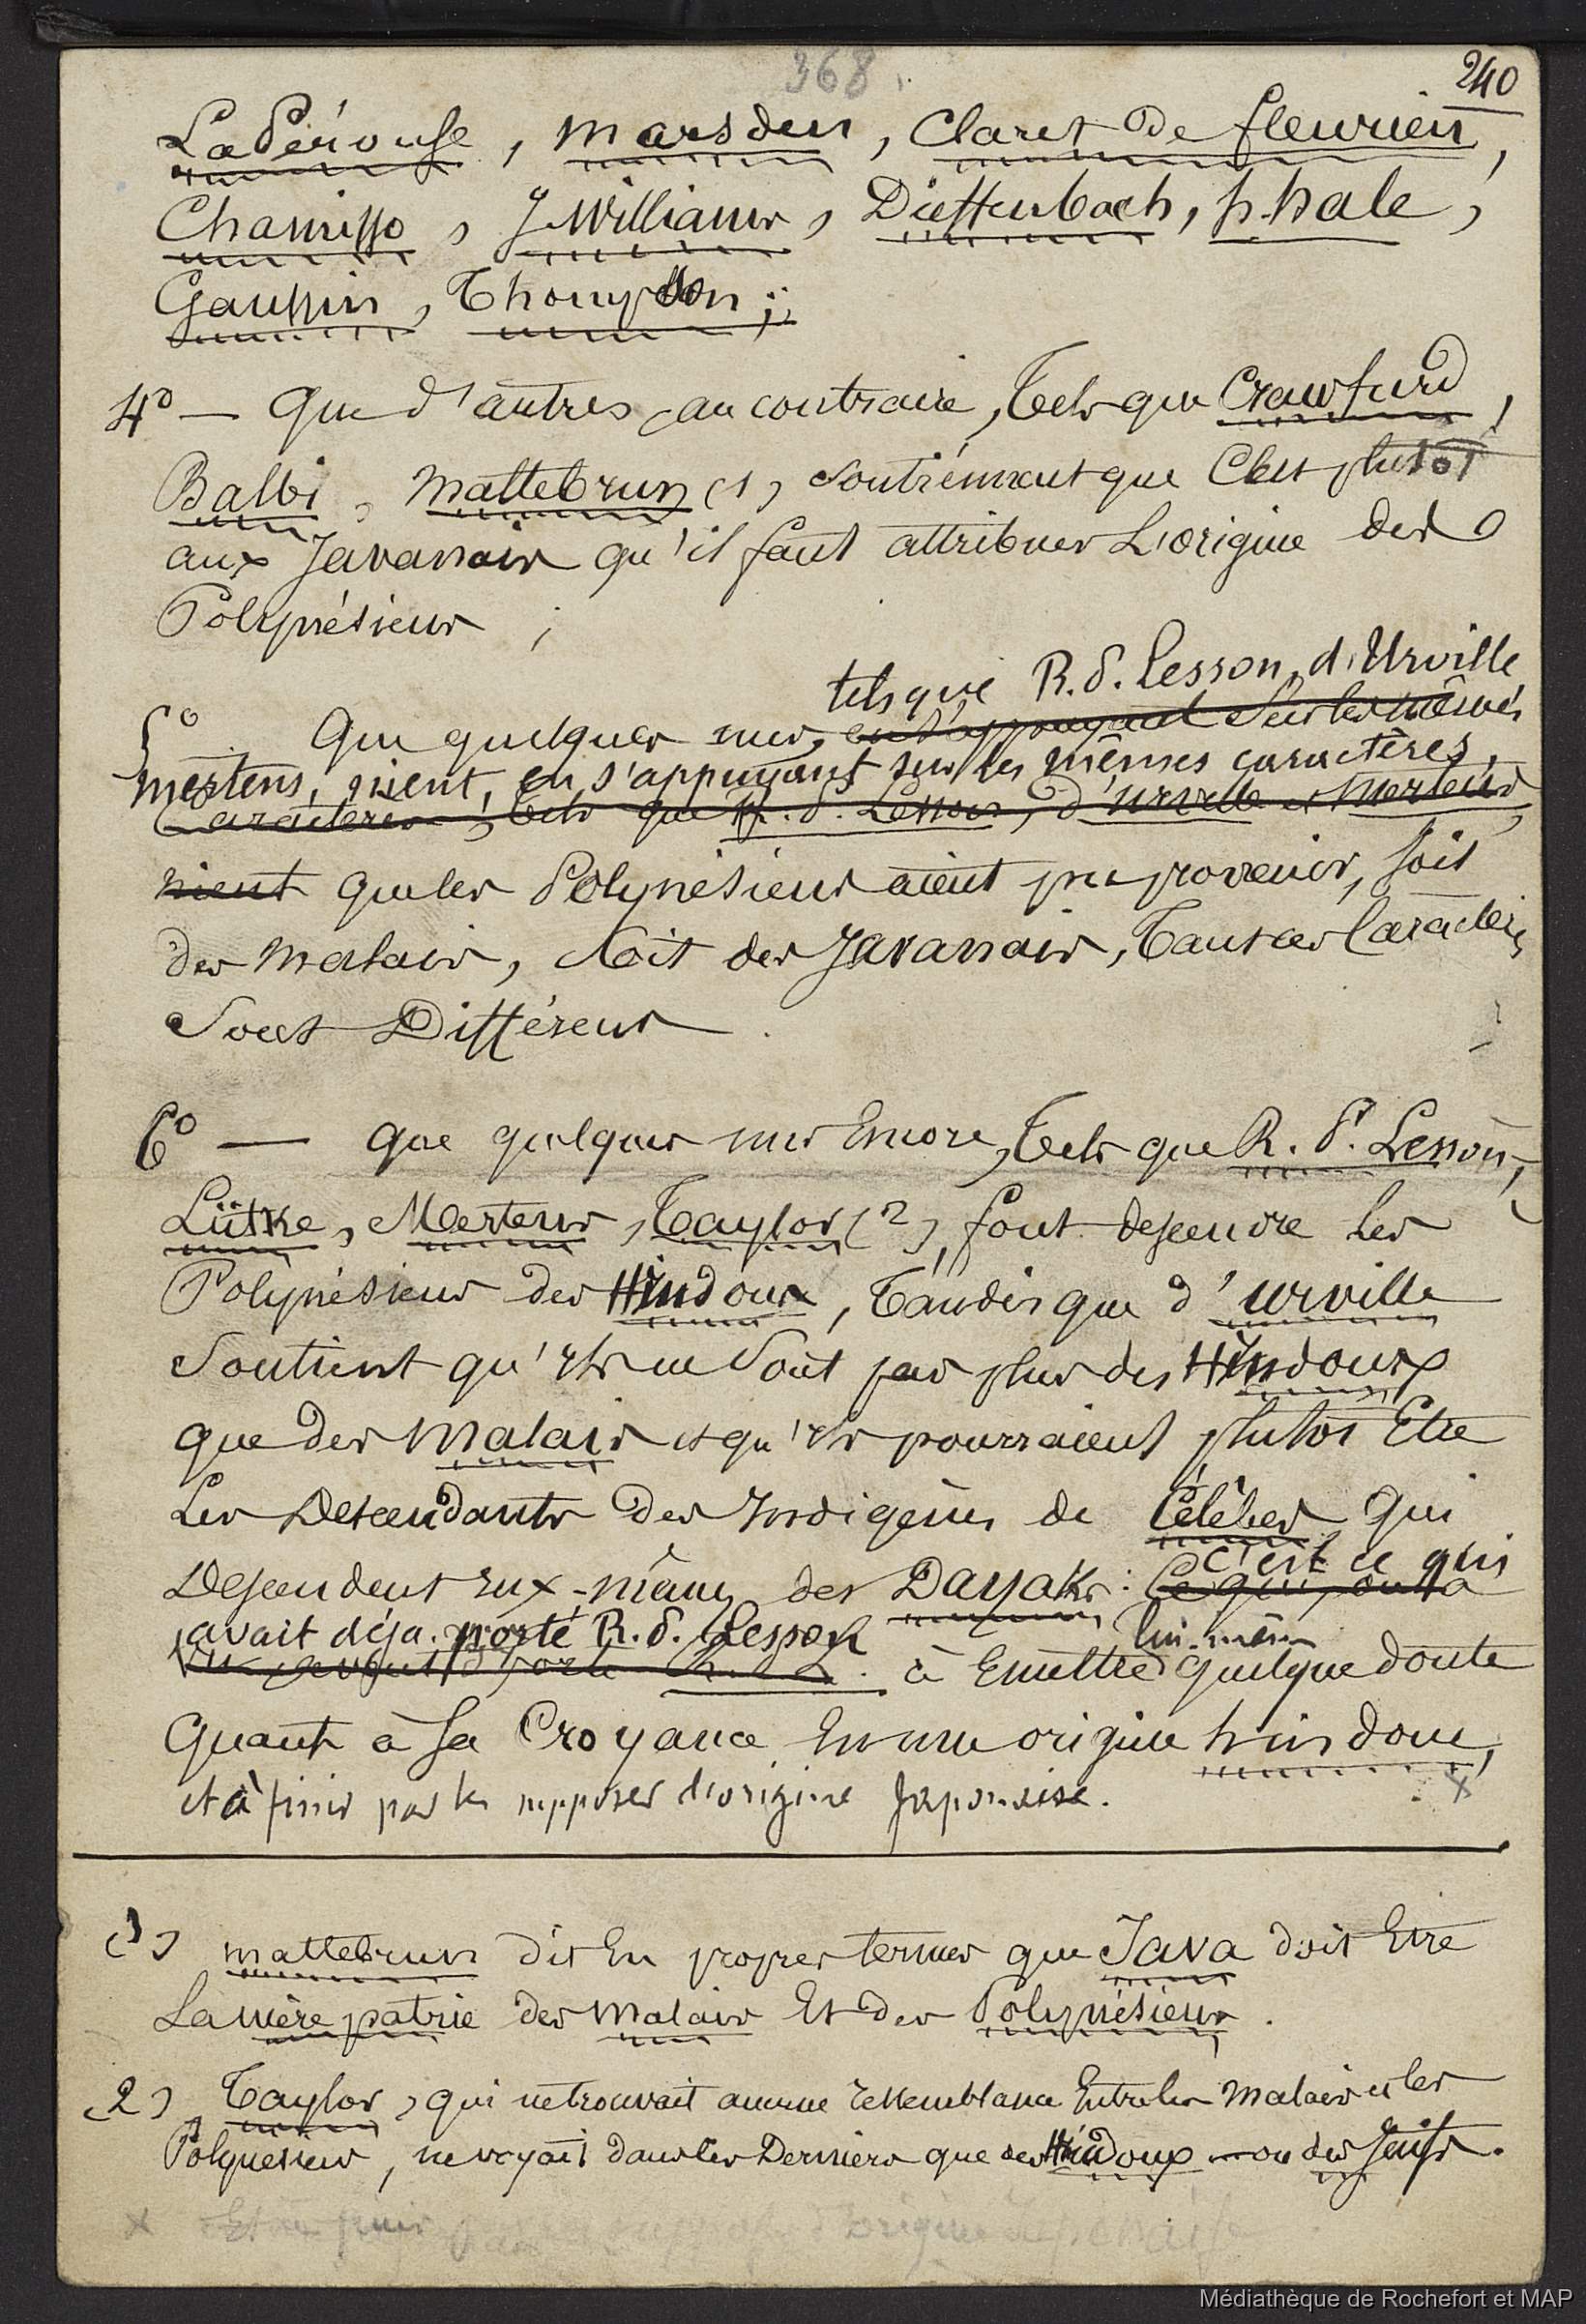 368.
240
La Pérouse, Marsden, Claret de fleurieu,
Chamisso, J. Williams, Dieffenbach, h. hale,
Gaussin, Thompson;
4° — Que d'autres, au contraire, Tels que Crawfurd,
Balbi, Maltebrun (1), Soutiennent que C'est plutôt
aux Javanais qu'il faut attribuer L'origine des
Polynésiens ;
tels que R. P. Lesson, d'Urville
5° Que quelques uns, en s'appuyant Sur les mêmes
Mertens, nient, en s'appuyant sur les mêmes caractères,
Caractères, Tels que R. P. Lesson, d'Urville et Mertens,
nient que les Polynésiens aient pu provenir, soit
des Malais, soit des Javanais, Tant ces Caractères
Sont Différents.
6° — Que quelques uns Encore, Tels que R. P. Lesson,
Lütke, Mertens, Taylor (2), font descendre Les
Polynésiens des Hindoux, Tandis que d'Urville
Soutient qu'ils ne Sont pas plus des Hindoux
que des Malais et qu'ils pourraient plutôt Etre
Les Descendants des Indigènes de Célèbes qui
Descendent Eux-mêmes des Dayaks : Ce qui porta
c'est ce qui
avait déja porté R. P. Lesson
lui-même
à Emettre quelque doute
Quant à Sa Croyance En une origine hindoue,
et à finir par les supposer d'origine Japonaise.
(1) Maltebrun dit En propres termes que Java doit Etre
La mère patrie des Malais Et des Polynésiens.
(2) Taylor, qui ne trouvait aucune ressemblance Entre les Malais et les
Polynesiens, ne voyait dans les Derniers que des Hindoux ou des Juifs.
x Et à finir par les supposer d'origine Japonaise
Médiathèque de Rochefort et MAP